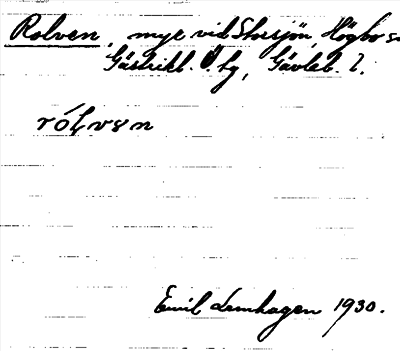 Rolven, myr vid Storsjön, Högbo s
Gästrikl. Ö hg, Gävleb. l.
rólvən
Emil Lennhagen 1930.